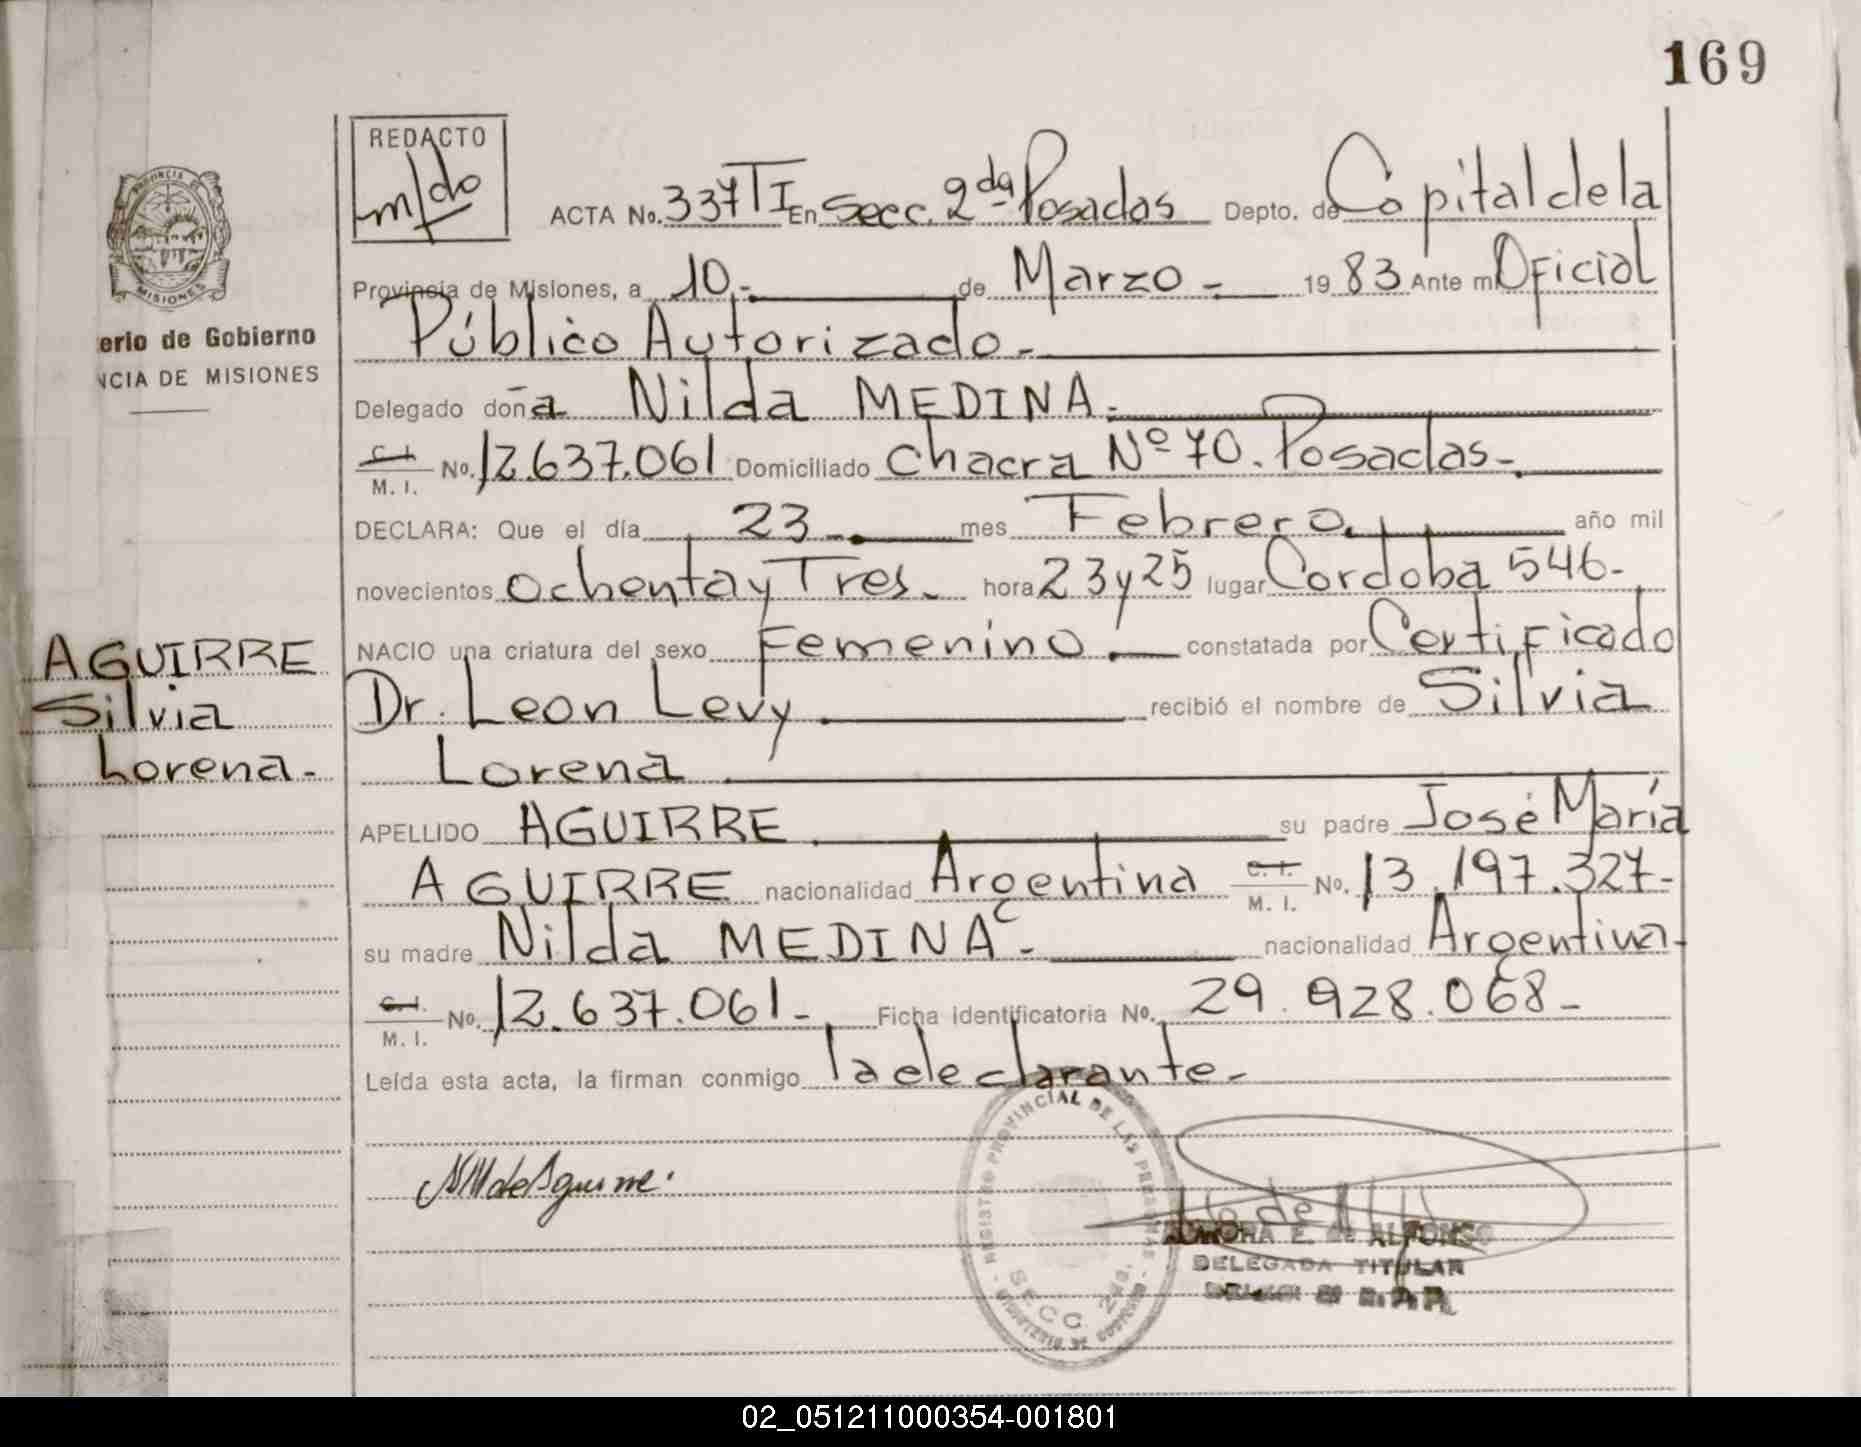 169
REDACTO
ACTA No. 337 TI En Secc. 2da Posadas Depto. de Capital de la
Provincia de Misiones, a 10.- de Marzo - 1983 Ante mi Oficial
Público Autorizado.-
Delegado doña Nilda MEDINA.-
C. I. M. I. No. 12.637.061 Domiciliado Chacra Nº 70. Posadas-.
DECLARA: Que el día 23.- mes Febrero. año mil
novecientos ochenta y Tres.- hora 23 y 25 lugar Cordoba 546-
NACIO una criatura del sexo Femenino.- constatada por Certificado
Dr. Leon Levy recibió el nombre de Silvia
Lorena
APELLIDO AGUIRRE su padre José María
AGUIRRE nacionalidad Argentina C. I. M. I. No. 13.197.327-
su madre Nilda MEDINA.- nacionalidad Argentina-
C. I. M. I. No. 12.637.061- Ficha identificatoria No. 29.928.068-
Leída esta acta, la firman conmigo la declarante-
PROVINCIA DE MISIONES
erio de Gobierno
NCIA DE MISIONES
AGUIRRE
Silvia
Lorena-
NM de Aguirre.
REGISTRO PROVINCIAL DE LAS PERSONAS
SECC. 2da.
E. de ALFONSO
DELEGADA TITULAR
R.P.P.
02_051211000354-001801